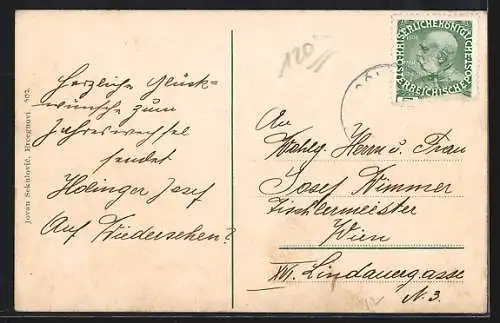 Herzliche Glück-
wünsche zum
Jahreswechsel
sendet
Holinger Josef
Auf Wiedersehen?
Jovan Sekulović, Ercegnovi 502.
120
KAISERLICHE KÖNIGLICHE
ÖSTERREICHISCHE
An
Wohlg. Herrn u. Frau
Josef Wimmer
Tischlermeister
Wien
XVI. Lindauergasse
N. 3.